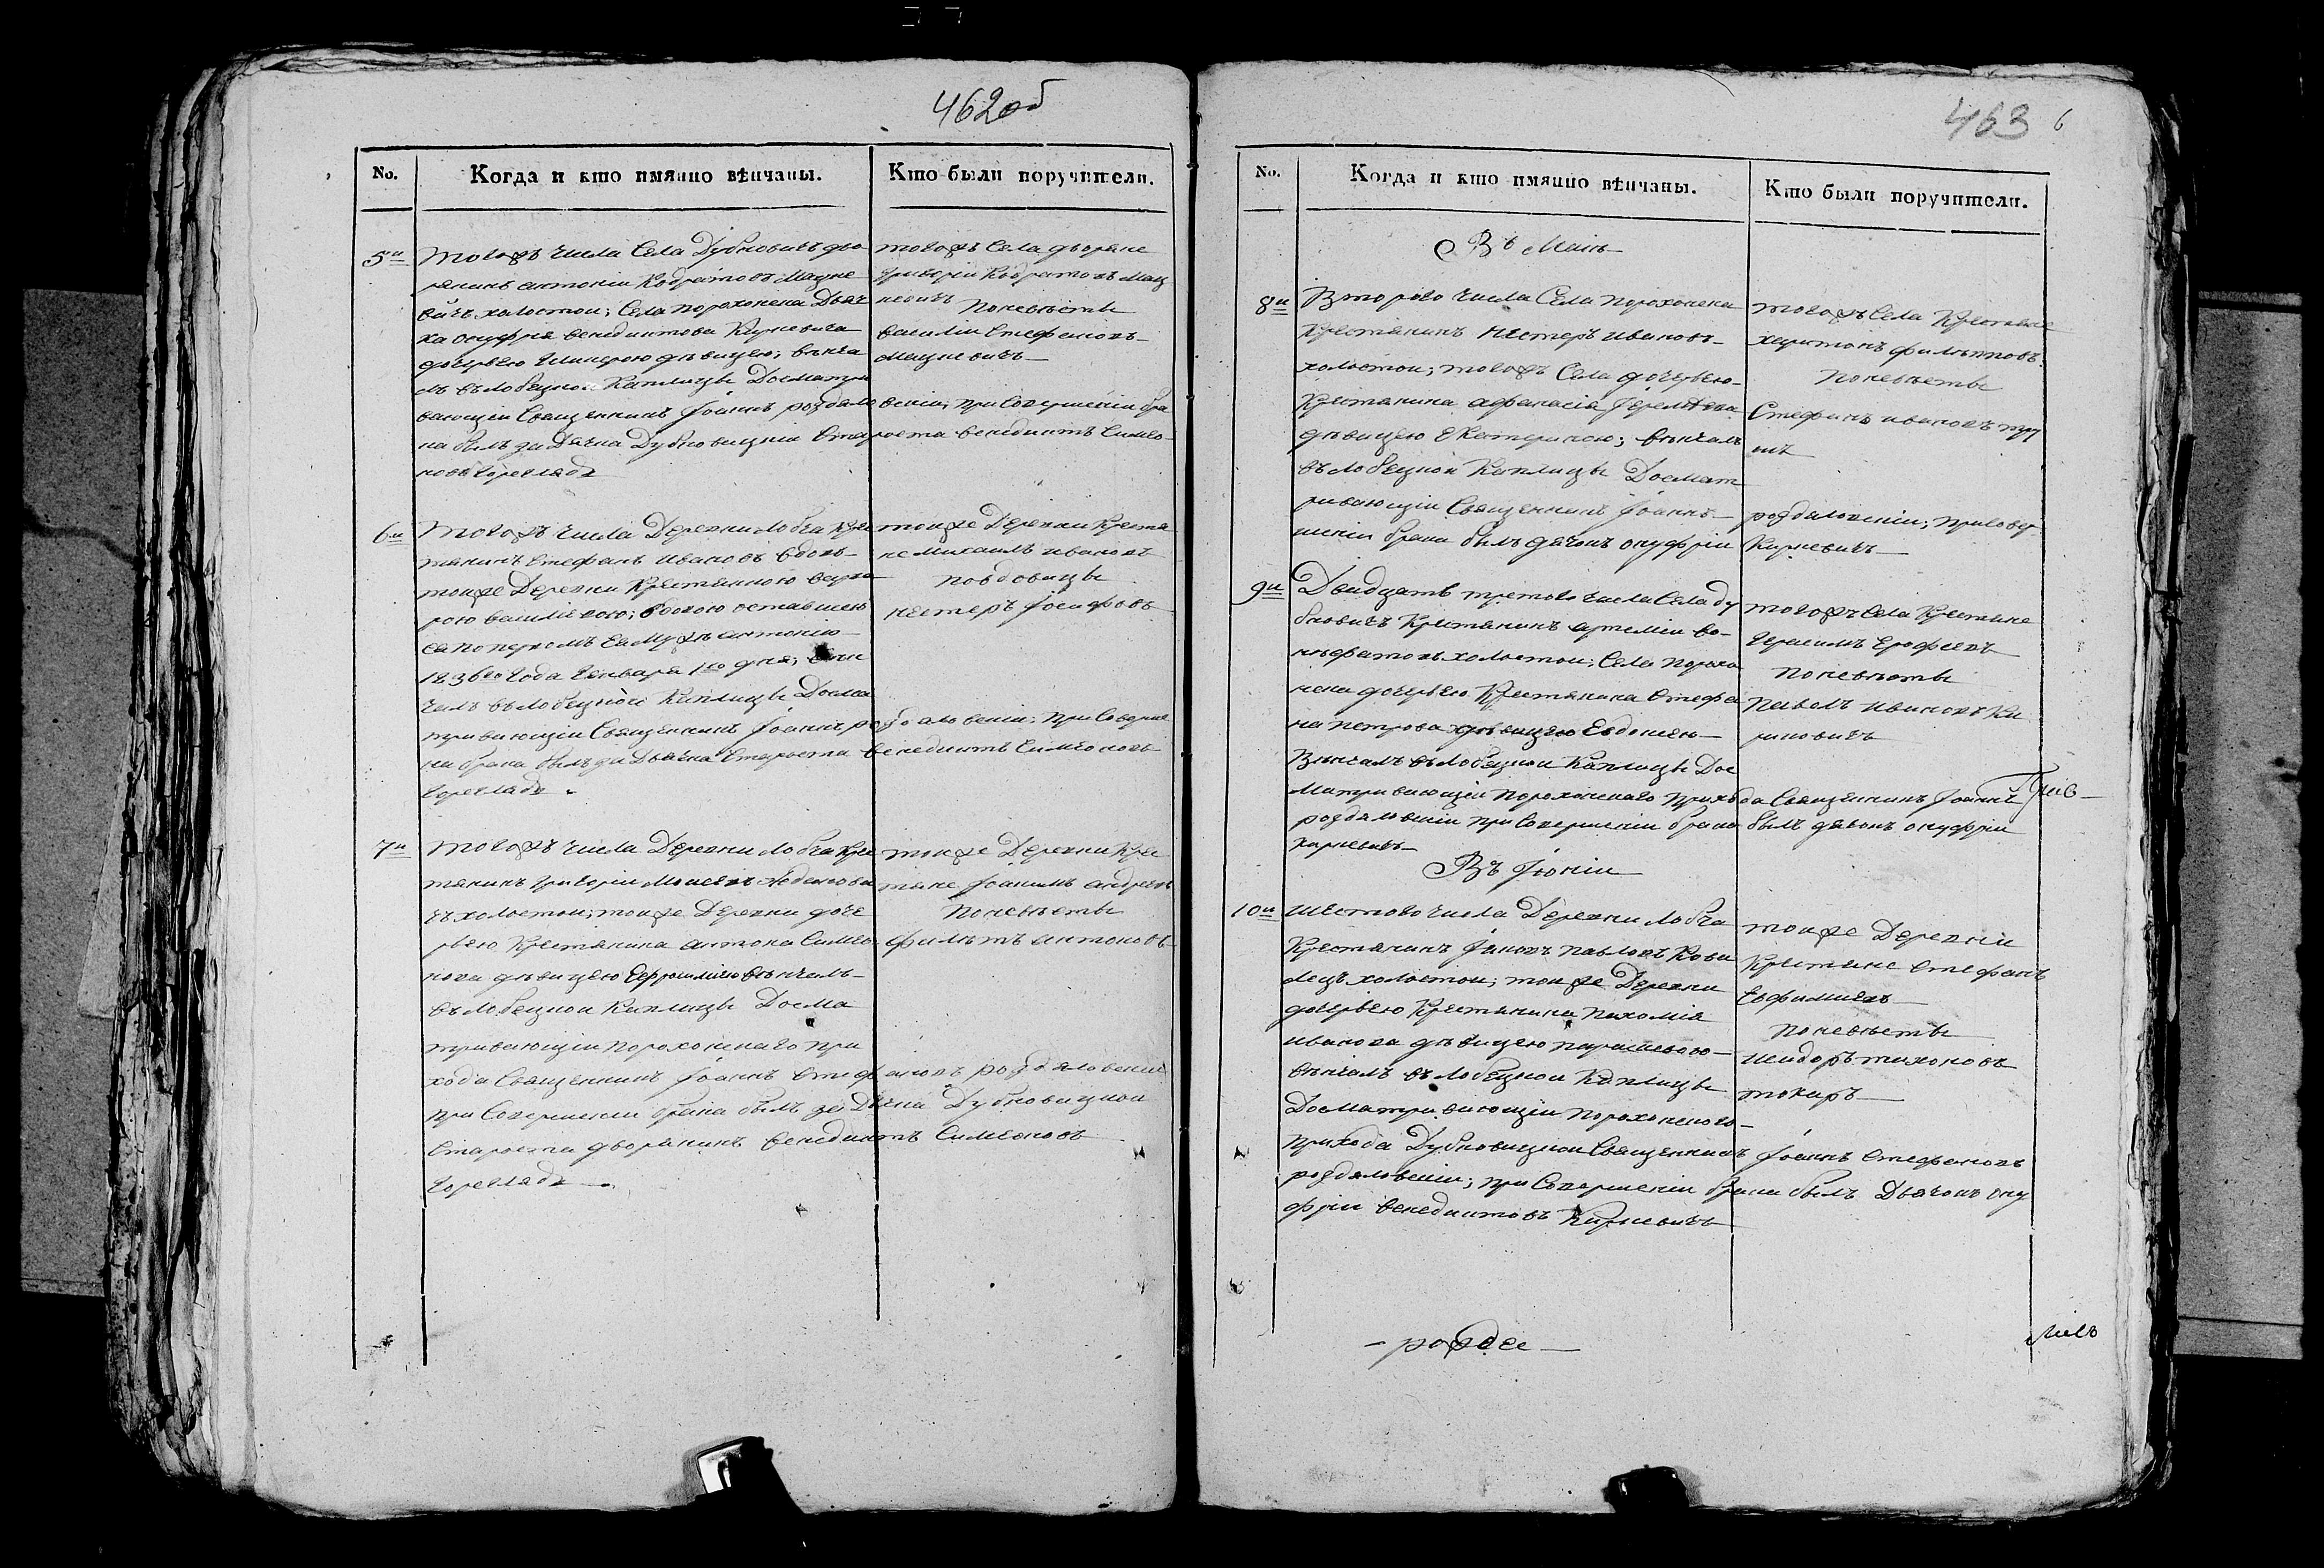 462 об
No.
Когда и кто имянно вѣнчаны.
Кто были поручители.
5й
Тогожъ числа Села Дубновичъ дво
рянинъ антоній Кодратовъ Мацке
вичъ холостои; Села порохонска Дьяч
ка онуфрія венедиктова Киркевича
дочерью дѣвицею; вѣнча
лъ въ Лобецкои Каплицы Досматри
вающіи Священникъ Іоаннъ роздяло
на былъ за Дячка Дубновицкіи Ста
новъ
тогожъ Села дворяне
григоріи Кодратовъ Мац
кевичъ
По невѣсты
василіи Стефановъ
Мацкевичъ
вскіи; при Совершеніи бра
роста венедиктъ Симео
6й
Тогожъ числа Деревни Лобча Кре
тянинъ Стефанъ Ивановъ вдовъ
тоиже Деревни Крестянкою варва
рою василіевою; вдовою оставшею
ся по первомъ ея мужѣ антонію
1836го года Генваря 1го дня; вѣн
чалъ въ Лобецкои Каплицы Досма
тривающіи Священникъ Іоаннъ роздяловскіи; при Соверше
ніи брака былъ за Дьячка Староста венедиктъ Симеоновъ
тоиже Деревни Крестя
не Михаилъ ивановъ
по вдовицы
нестеръ Іосифовъ
7й
Тогожъ числа Деревни Лобча Кре
тянинъ григоріи Моисеевъ
чъ холостои; тоиже Деревни доче
рью Крестянина антона Симео
нова дѣвицею вѣнчалъ
въ Лобецкои Каплицы Досма
тривающіи порохонскаго при
хода Священникъ Іоаннъ Стефановъ роздяловскіи
при Совершеніи брака былъ за Дячка Дубновицкои
Староста дворянинъ венедиктъ Симеоновъ
тоиже Деревни Кре
тяне Іоакимъ андреевъ
По невѣсты
филътъ антоновъ
463 6
No.
Когда и кто имянно вѣнчаны.
Кто были поручители.
Въ Маіи
8й
Второго числа Села порохонска
Крестянинъ нестеръ ивановъ
холостои; тогожъ Села дочерью
Крестянина афанасія
дѣвицею Екатериною; вѣнчалъ
въ Лобецкои Каплицы Досмат
ривающіи Священникъ Іоаннъ
шеніи брака былъ дячокъ онуфріи
тогожъ Села Крестяне
харитонъ филътовъ
По невѣсты
Стефанъ ивановъ
роздяловскіи; при Совер
Киркевичъ
9й
Двадцать третого числа Села Ду
бновичъ Крестянинъ артеміи во
нифатовъ холостои; Села порохо
нска дочерью Крестянина Стефа
на петрова дѣвицею Евдокіею
Вѣнчалъ въ Лобецкои Каплицы Дос
матривающіи порохонскаго прихода Священникъ Іоаннъ
роздяловскіи при Совершеніи брака былъ дячокъ онуфріи
киркевичъ
тогожъ Села Крестяне
герасимъ Ерофеевъ
По невѣсты
Павелъ ивановъ Ки
риновичъ
Въ Іюніи
10й
Шестого числа Деревни Лобча
Крестянинъ Іаковъ Павловъ Кова
лецъ холостои; тоиже Деревни
дочерью Крестянина пахомія
иванова дѣвицею параскевою
вѣнчалъ въ Лобецкои Каплицы
Досматривающіи порохонского
прихода Дубновицкои Священникъ Іоаннъ Стефановъ
роздяловскіи; при Совершеніи брака былъ Дьячокъ ону
фріи венедиктовъ Киркевичъ
тоиже Деревни
Крестяне Стефанъ
Евфиміевъ
По невѣсты
исидоръ тихоновъ
токаръ